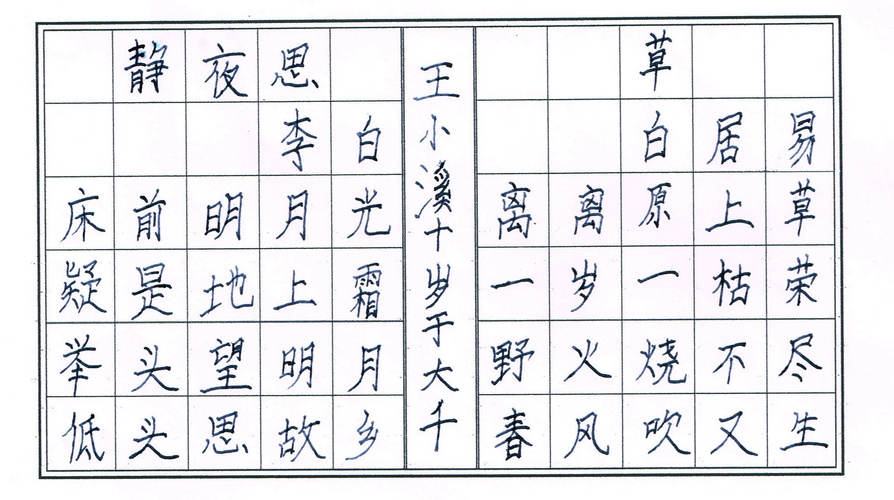 静夜思
李白
床前明月光
疑是地上霜
举头望明月
低头思故乡
王小溪十岁于大千
草
白居易
离离原上草
一岁一枯荣
野火烧不尽
春风吹又生